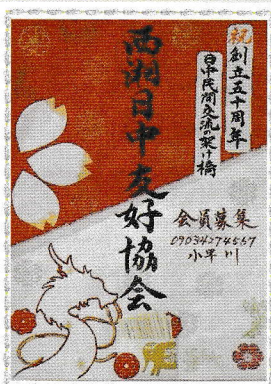 祝創立五十周年
日中民間交流の架け橋
西湘日中友好協会
会員募集
09034274557
小早川